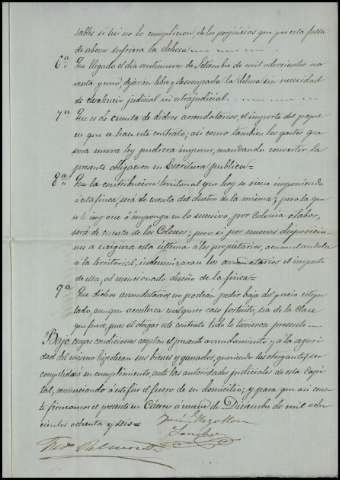 tables si así no lo cumplieren de los perjuicios que por esta falta
de abono sufriera la dehesa
6.ª Que llegado el día veintinueve de Setiembre de mil ochocientos no
venta y uno dejarán libre y desocupada la dehesa sin necesidad
de desahucio judicial ni extrajudicial.
7.ª Que es de cuenta de dichos arrendatarios el importe del papel
en que se haga este contrato; así como también los gastos que
una nueva ley pudiera imponer, mandando convertir la
presente obligacion en Escritura pública
8.ª Que la contribucion territorial que hoy se viene imponiendo
á esta finca, será de cuenta del dueño de la misma; pero la que
se impone ó imponga en lo sucesivo, por Colonia ó labor,
será de cuenta de los Colonos; pero si por nuevas disposicio
nes se exigiera esta última á los propietarios, acumulándola
á la territorial, indemnizarán los arrendatarios el importe
de ella, al mencionado dueño de la finca
9.ª Que dichos arrendatarios no podrán pedir baja del precio estipu
lado, aunque acontezca cualquier caso fortuito, sea de la clase
que fuere, pues al otorgar este contrato todo lo tuvieron presente
Bajo cuyas condiciones aceptan el presente arrendamiento y á la seguri
dad del mismo hipotecan sus bienes y ganados, queriendo los otorgantes ser
compelidos á su cumplimiento, ante las autoridades judiciales de esta Capi
tal, renunciando á este fin el fuero de su domicilio; y para que así cons
te firmamos el presente en Cáceres á de Diciembre de mil ocho
cientos ochenta y seis
José
Sanchez